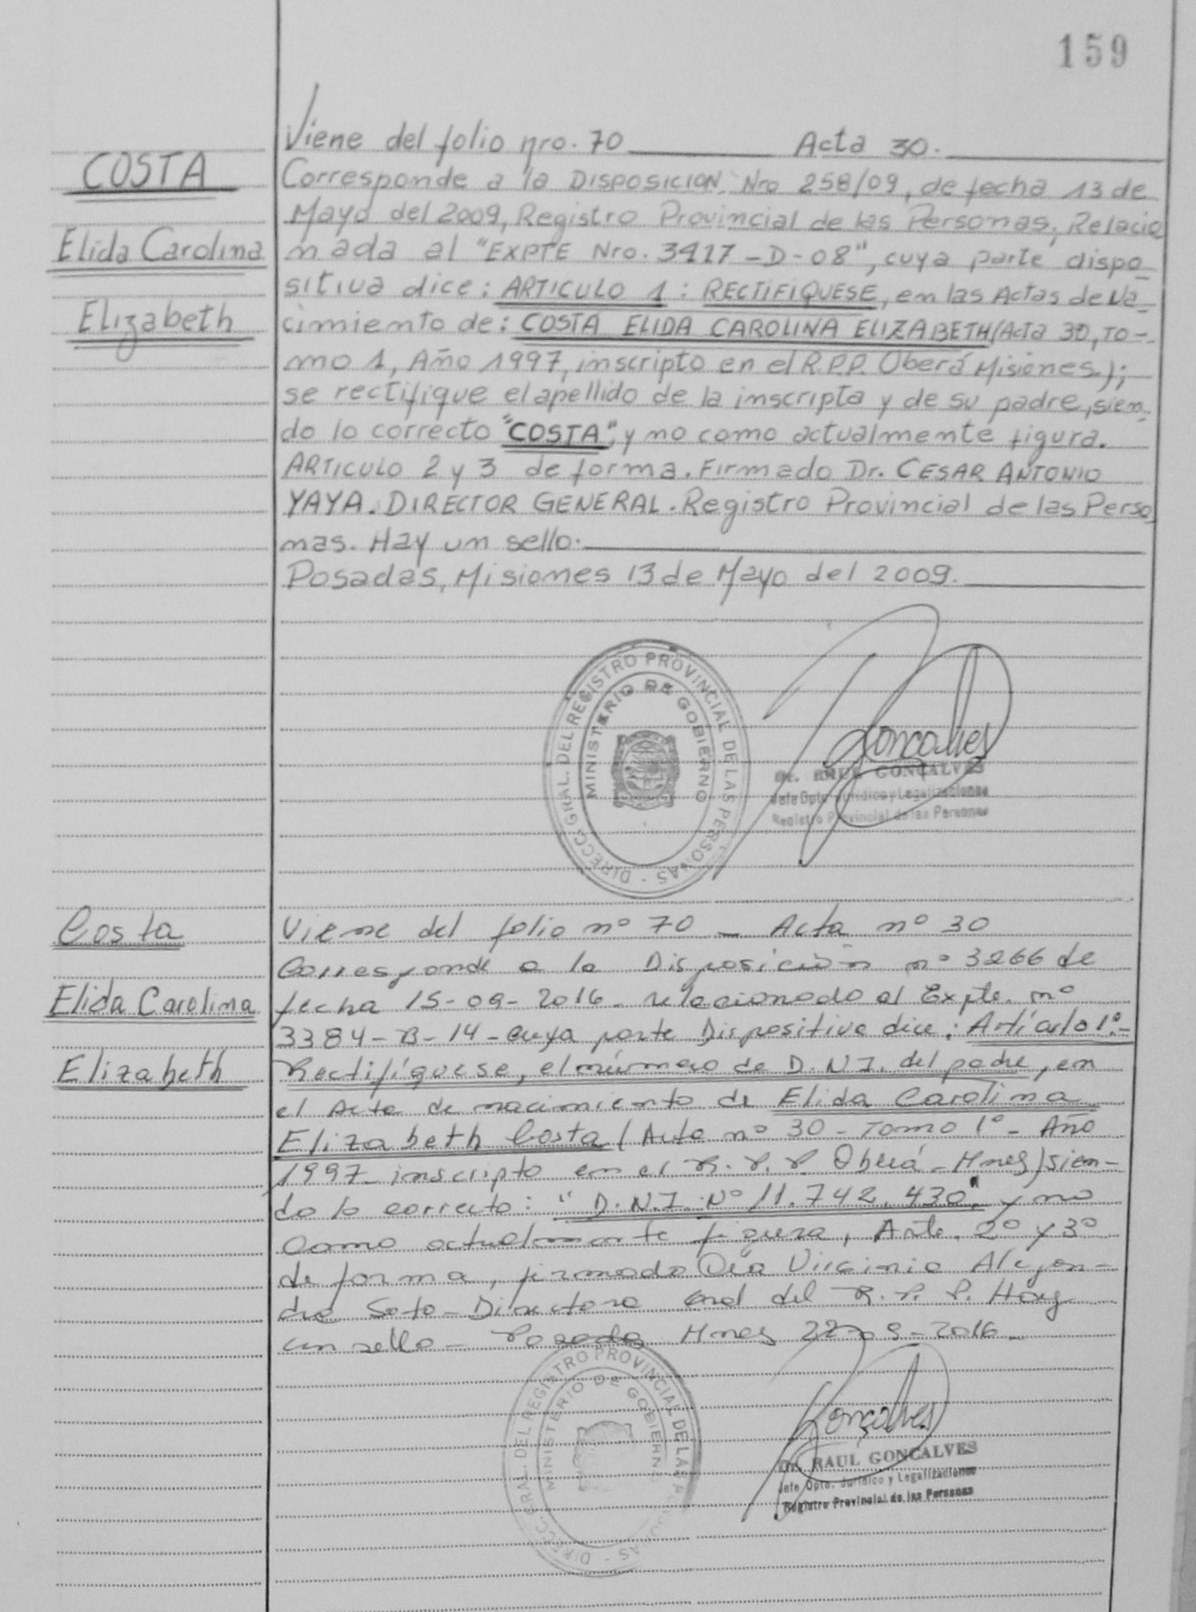 159
Viene del folio nro. 70 Acta 30.
COSTA
Corresponde a la DISPOSICION Nro 258/09, de fecha 13 de
Mayo del 2009, Registro Provincial de las Personas, Relacio
Elida Carolina
nada al "EXPTE Nro. 3417-D-08", cuya parte dispo-
sitiva dice: ARTICULO 1: RECTIFIQUESE, en las Actas de Na-
Elizabeth
cimiento de: COSTA ELIDA CAROLINA ELIZABETH (Acta 30, TO-
mo 1, Año 1997, inscripto en el R.P.P. Oberá Misiones);
se rectifique el apellido de la inscripta y de su padre, sien-
do lo correcto "COSTA", y no como actualmente figura.
ARTICULO 2 y 3 de forma. Firmado Dr. CESAR ANTONIO
YAYA. DIRECTOR GENERAL. Registro Provincial de las Perso
nas. Hay un sello.
Posadas, Misiones 13 de Mayo del 2009.
DIRECC. GRAL. DEL REGISTRO PROVINCIAL DE LAS PERSONAS
MINISTERIO DE GOBIERNO
Goncalves
Dr. RAUL GONCALVES
Jefe Dpto. Jurídico y Legalizaciones
Registro Provincial de las Personas
Costa
Viene del folio nº 70 - Acta nº 30
Corresponde a la Disposición nº 3266 de
Elida Carolina
fecha 15-09-2016. relacionado al Expte. nº
3384-B-14-cuya parte Dispositiva dice: Artículo 1º-
Elizabeth
Rectifíquese, el número de D.N.I. del padre, en
el Acta de nacimiento de Elida Carolina
Elizabeth Costa (Acta nº 30 - Tomo 1º - Año
1997 inscripto en el R.P.P Oberá - Mnes) sien-
do lo correcto: "D.N.I. Nº 11.742.430" y no
como actualmente figura, Arts. 2º y 3º
de forma, firmado Dra Virginia Alejan-
dra Soto - Directora Gral del R.P.P. Hay
un sello - Posadas Mnes 22-09-2016.
DIRECC. GRAL. DEL REGISTRO PROVINCIAL DE LAS
MINISTERIO DE GOBIERNO
Goncalves
Dr. RAUL GONCALVES
Jefe Dpto. Jurídico y Legalizaciones
Registro Provincial de las Personas